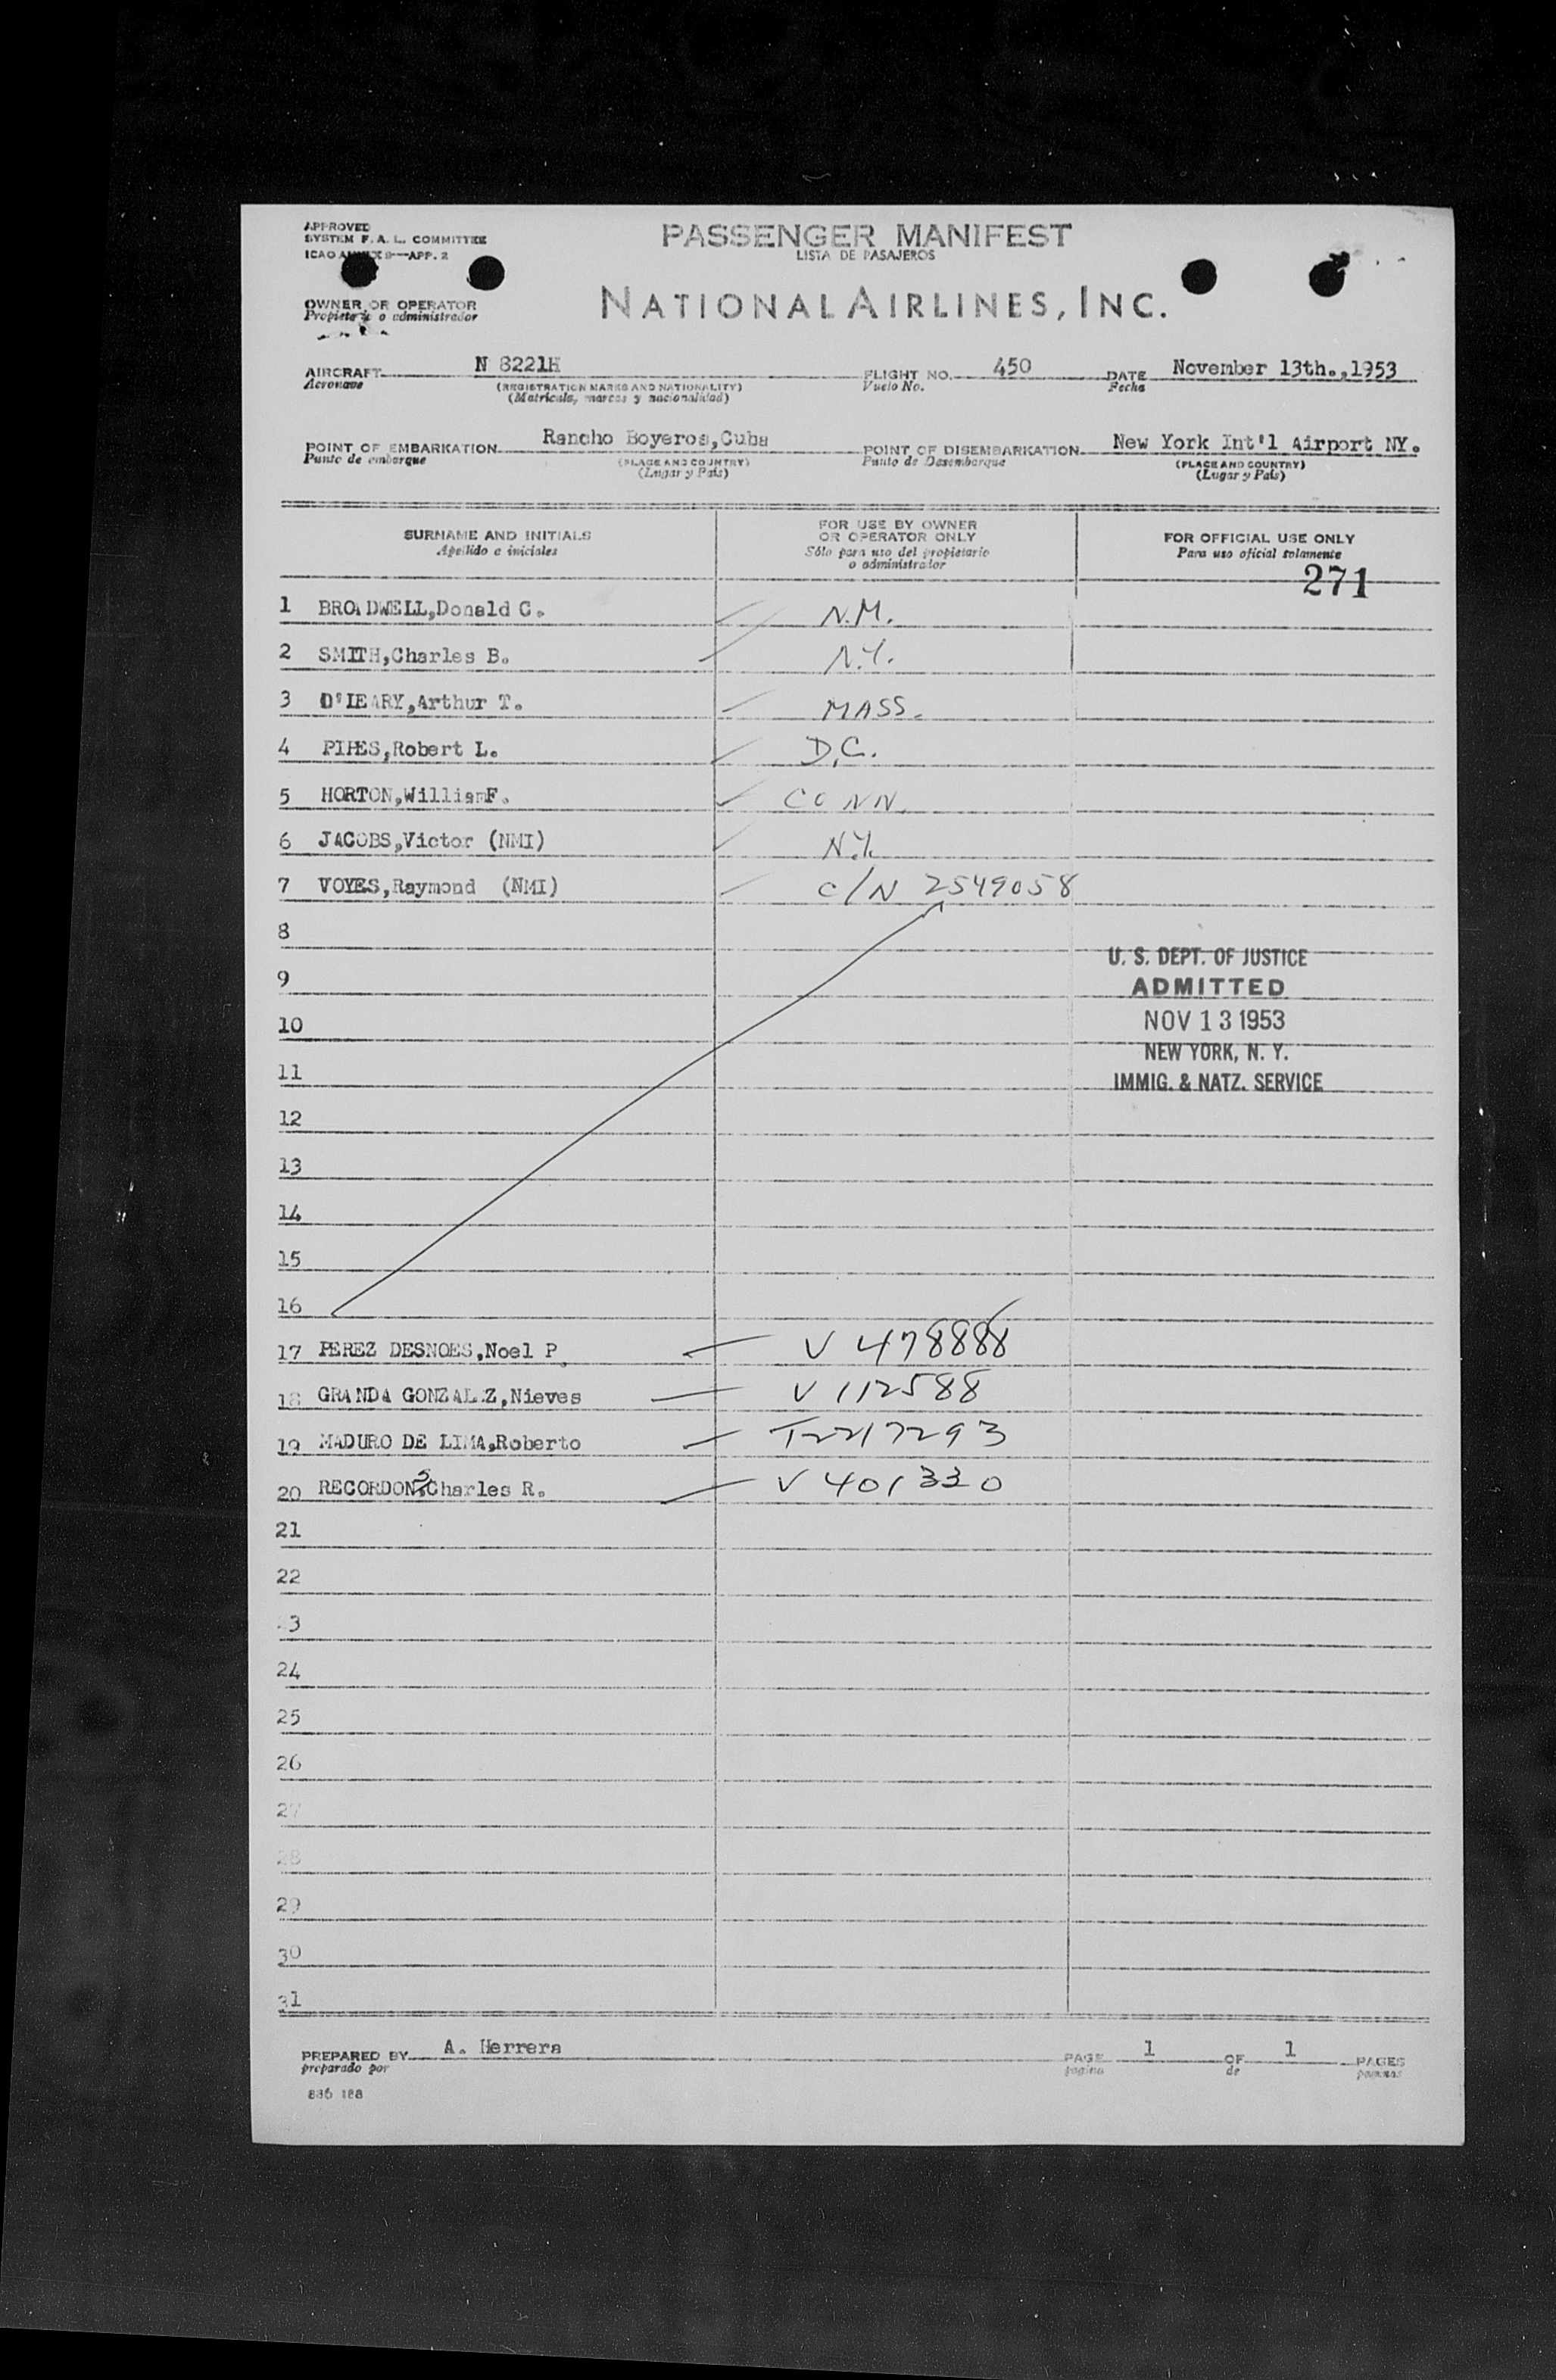 APPROVED
SYSTEM F. A. L. COMMITTEE
ICAO ANNEX 9—APP. 2
PASSENGER MANIFEST
LISTA DE PASAJEROS
OWNER OR OPERATOR
Propietario o administrador
NATIONAL AIRLINES, INC.
AIRCRAFT N 8221H FLIGHT NO. 450 DATE November 13th.,1953
Aeronave (REGISTRATION MARKS AND NATIONALITY) Vuelo No. Fecha
(Matrícula, marcas y nacionalidad)
POINT OF EMBARKATION Rancho Boyeros,Cuba POINT OF DISEMBARKATION New York Int'l Airport NY.
Punto de embarque (PLACE AND COUNTRY) Punto de Desembarque (PLACE AND COUNTRY)
(Lugar y País) (Lugar y País)
SURNAME AND INITIALS FOR USE BY OWNER OR OPERATOR ONLY FOR OFFICIAL USE ONLY
Apellido e iniciales Sólo para uso del propietario o administrador Para uso oficial solamente
271
1 BROADWELL,Donald C. N.M.
2 SMITH,Charles B. N.Y.
3 O'LEARY,Arthur T. MASS.
4 PIPES,Robert L. D.C.
5 HORTON,WilliamF. CONN.
6 JACOBS,Victor (NMI) N.Y.
7 VOYES,Raymond (NMI) C/N 2549058
8
U. S. DEPT. OF JUSTICE
9
ADMITTED
10
NOV 13 1953
NEW YORK, N. Y.
11
IMMIG. & NATZ. SERVICE
12
13
14
15
16
17 PEREZ DESNOES,Noel P. V 478888
18 GRANDA GONZALEZ,Nieves V 112588
19 MADURO DE LIMA,Roberto T2217293
20 RECORDON,Charles R. V 401330
21
22
23
24
25
26
27
28
29
30
31
PREPARED BY A. Herrera PAGE 1 OF 1 PAGES
preparado por pagina de paginas
836 188